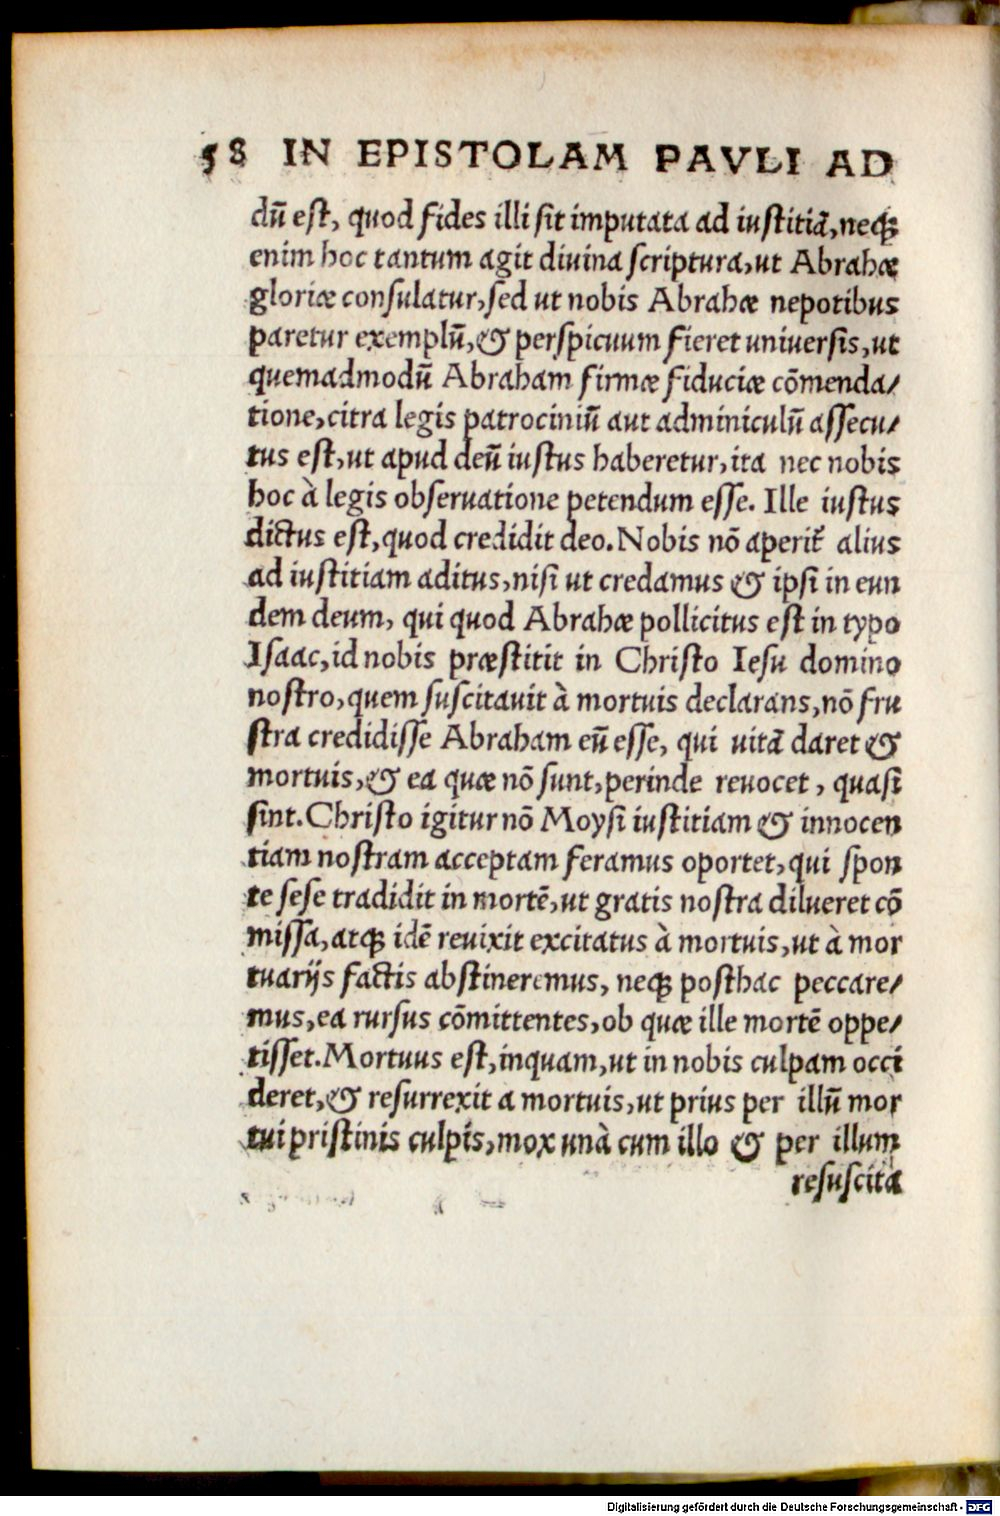 58 IN EPISTOLAM PAVLI AD
dũ est, quod fides illi sit imputata ad iustitiã, neq;
enim hoc tantum agit diuina scriptura, ut Abrahæ
gloriæ consulatur, sed ut nobis Abrahæ nepotibus
paretur exemplũ, & perspicuum fieret uniuersis, ut
quemadmodũ Abraham firmæ fiduciæ cõmenda/
tione, citra legis patrociniũ aut adminiculũ assecu/
tus est, ut apud deũ iustus haberetur, ita nec nobis
hoc à legis obseruatione petendum esse. Ille iustus
dictus est, quod credidit deo. Nobis nõ aperit᷑ alius
ad iustitiam aditus, nisi ut credamus & ipsi in eun
dem deum, qui quod Abrahæ pollicitus est in typo
Isaac, id nobis præstitit in Christo Iesu domino
nostro, quem suscitauit à mortuis declarans, nõ fru
stra credidisse Abraham eũ esse, qui uitã daret &
mortuis, & ea quæ nõ sunt, perinde reuocet, quasi
sint. Christo igitur nõ Moysi iustitiam & innocen
tiam nostram acceptam feramus oportet, qui spon
te sese tradidit in mortẽ, ut gratis nostra dilueret cõ
missa, atq; idẽ reuixit excitatus à mortuis, ut à mor
tuarijs factis abstineremus, neq; posthac peccare/
mus, ea rursus cõmittentes, ob quæ ille mortẽ oppe/
tisset. Mortuus est, inquam, ut in nobis culpam occi
deret, & resurrexit a mortuis, ut prius per illũ mor
tui pristinis culpis, mox unà cum illo & per illum
resuscita
Digitalisierung gefördert durch die Deutsche Forschungsgemeinschaft - DFG